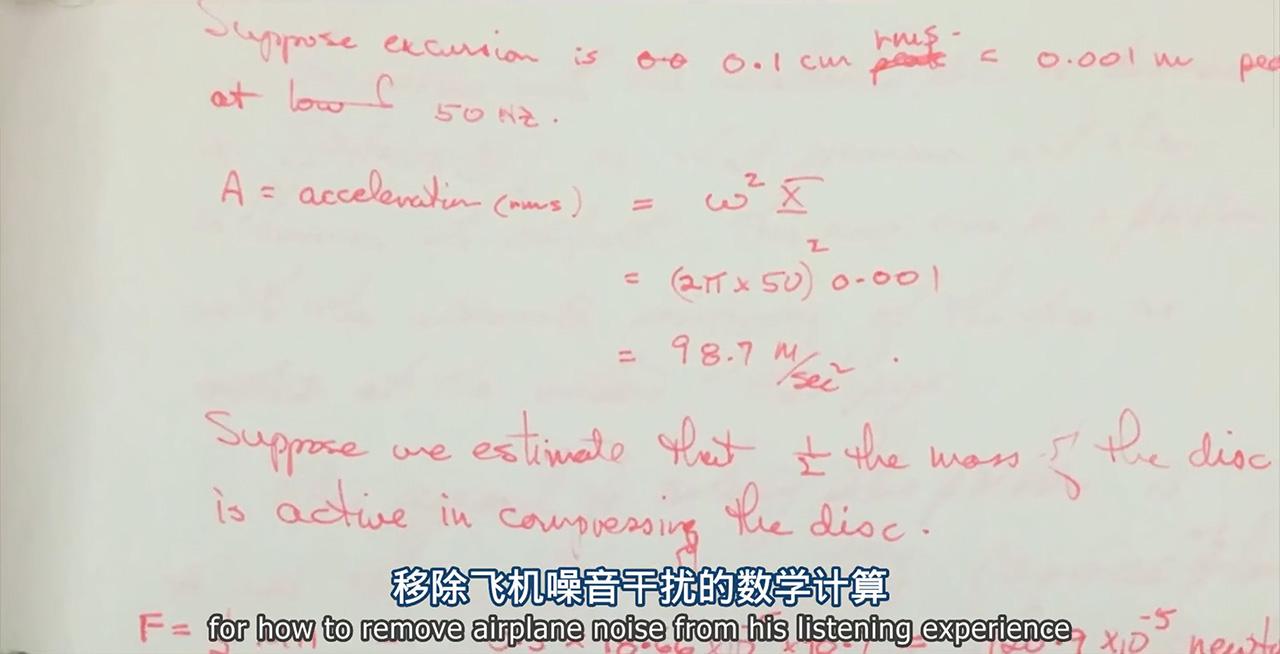 Suppose excursion is 0.1 cm rms. = 0.001 m
at low f 50 Hz.
A = acceleration (rms) = ω² X̅
= (2π x 50)² 0.001
= 98.7 m/sec²
Suppose we estimate that ½ the mass of the disc
is active in compressing the disc.
移除飞机噪音干扰的数学计算
F =
for how to remove airplane noise from his listening experience